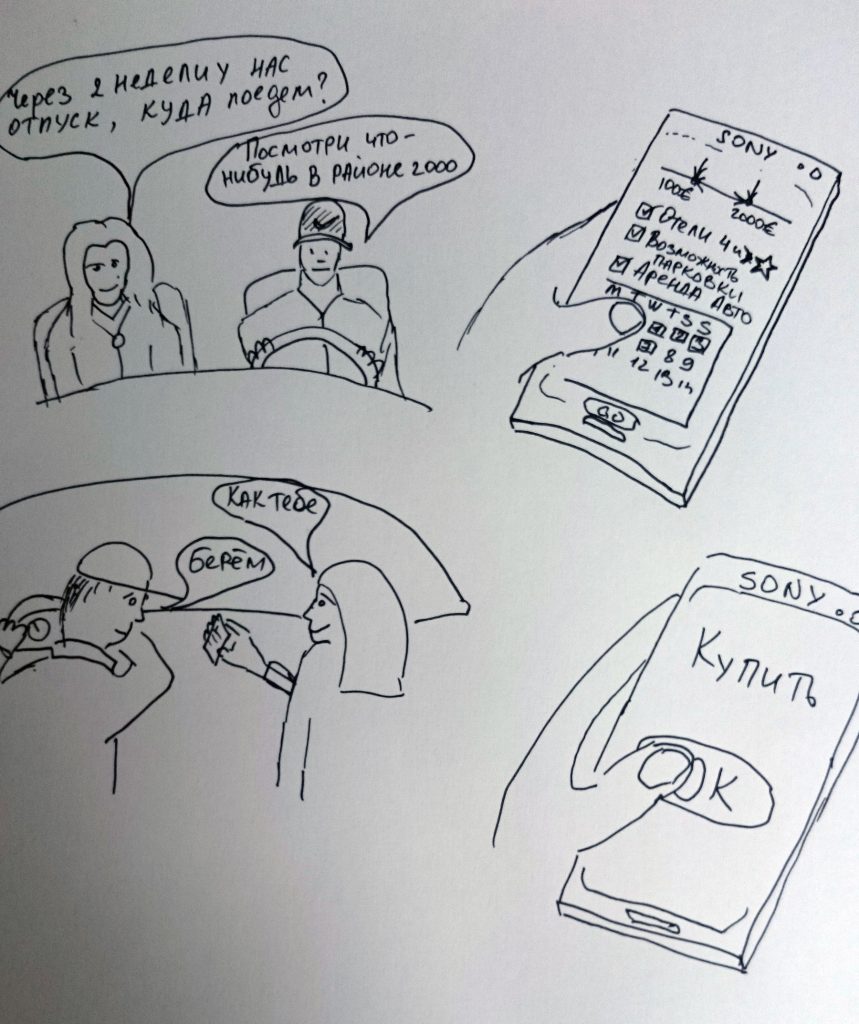 Через 2 недели у нас
отпуск, куда поедем?
Посмотри что-
нибудь в районе 2000
SONY
100€
2000€
Отели 4 и
Возможность
парковки
Аренда Авто
M T W T S S
1 2 3
8 9
11 12 13 14
GO
Как тебе
Берём
SONY
Купить
OK